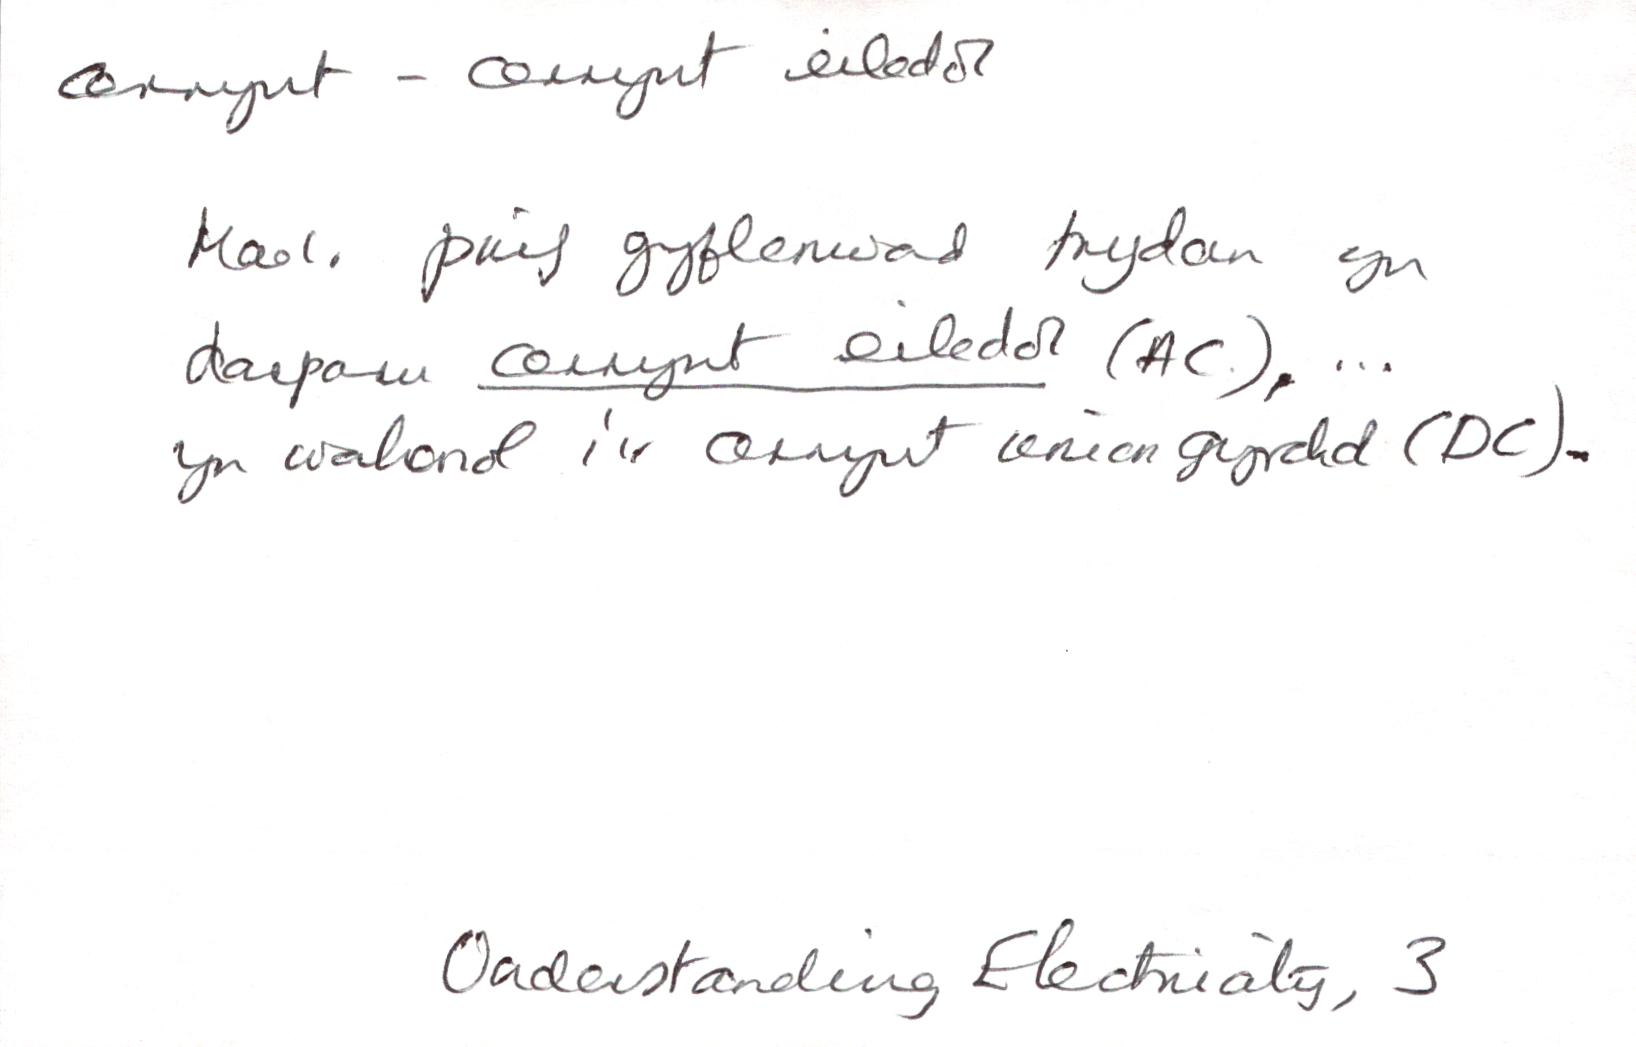 cerrynt - cerrynt eiledol
Mae'r prif gyflenwad trydan yn
darparu cerrynt eiledol (AC), ...
yn wahanol i'r cerrynt union gyrchd (DC).
Understanding Electricity, 3